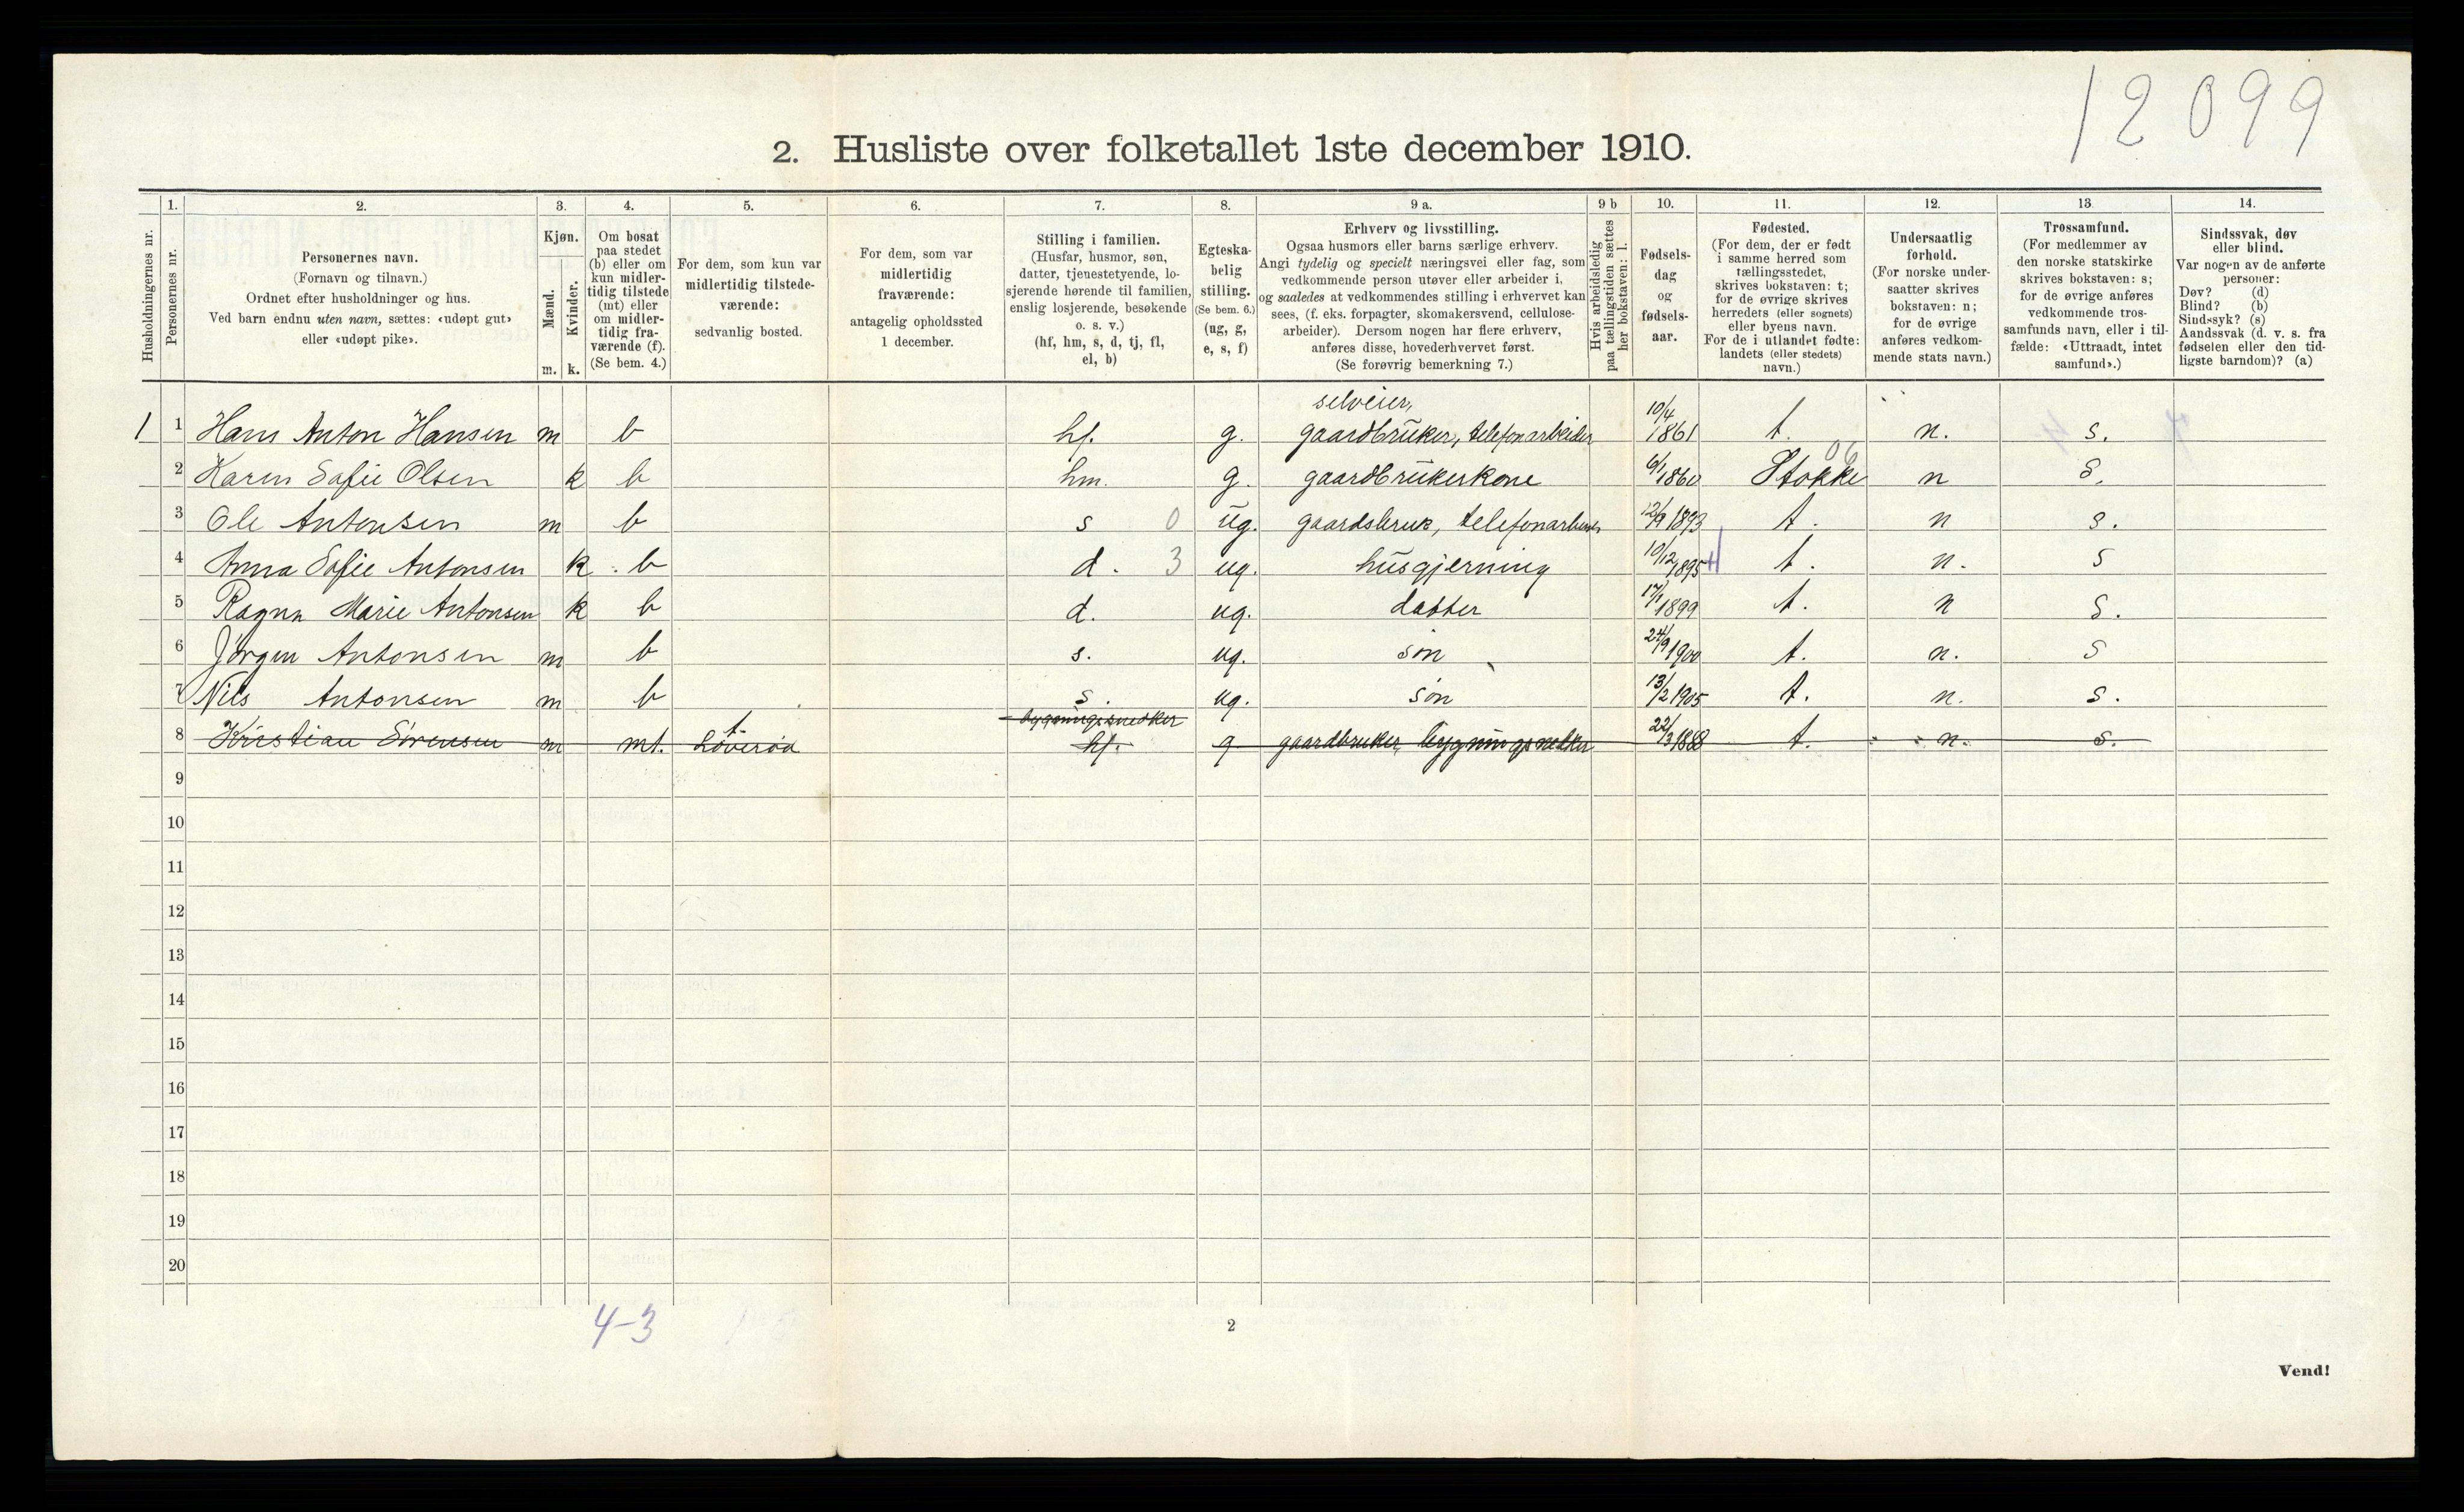 12099
2. Husliste over folketallet 1ste december 1910.
Husholdningernes nr.
1.
Personernes nr.
2.
Personernes navn.
(Fornavn og tilnavn.)
Ordnet efter husholdninger og hus.
Ved barn endnu uten navn, sættes: «udøpt gut»
eller «udøpt pike».
3.
Kjøn.
Mænd.
Kvinder.
m. k.
4.
Om bosat
paa stedet
(b) eller om
kun midler-
tidig tilstede
(mt) eller
om midler-
tidig fra-
værende (f).
(Se bem. 4.)
5.
For dem, som kun var
midlertidig tilstede-
værende:
sedvanlig bosted.
6.
For dem, som var
midlertidig
fraværende:
antagelig opholdssted
1 december.
7.
Stilling i familien.
(Husfar, husmor, søn,
datter, tjenestetyende, lo-
sjerende hørende til familien,
enslig losjerende, besøkende
o. s. v.)
(hf, hm, s, d, tj, fl,
el, b)
8.
Egteska-
belig
stilling.
(Se bem. 6.)
(ug, g,
e, s, f)
9 a.
Erhverv og livsstilling.
Ogsaa husmors eller barns særlige erhverv.
Angi tydelig og specielt næringsvei eller fag, som
vedkommende person utøver eller arbeider i,
og saaledes at vedkommendes stilling i erhvervet kan
sees, (f. eks. forpagter, skomakersvend, cellulose-
arbeider). Dersom nogen har flere erhverv,
anføres disse, hovederhvervet først.
(Se forøvrig bemerkning 7.)
9 b
Hvis arbeidsledig
paa tællingstiden sættes
her bokstaven: l.
10.
Fødsels-
dag
og
fødsels-
aar.
11.
Fødested.
(For dem, der er født
i samme herred som
tællingsstedet,
skrives bokstaven: t;
for de øvrige skrives
herredets (eller sognets)
eller byens navn.
For de i utlandet fødte:
landets (eller stedets)
navn.)
12.
Undersaatlig
forhold.
(For norske under-
saatter skrives
bokstaven: n;
for de øvrige
anføres vedkom-
mende stats navn.)
13
Trossamfund.
(For medlemmer av
den norske statskirke
skrives bokstaven: s;
for de øvrige anføres
vedkommende tros-
samfunds navn, eller i til-
fælde: «Uttraadt, intet
samfund».)
14.
Sindssvak, døv
eller blind.
Var nogen av de anførte
personer:
Døv? (d)
Blind? (b)
Sindssyk? (s)
Aandssvak (d. v. s. fra
fødselen eller den tid-
ligste barndom)? (a)
selveier,
1 1 Hans Anton Hansen m b hf. g. gaardbruker, telefonarbeider 10/4 1861 t. n. s.
06
2 Karen Sofie Olsen k b hm. g. gaardbrukerkone 6/1 1860 Stokke n S.
3 Ole Antonsen m b s 0 ug. gaardsbruk, telefonarbeider 12/9 1893 t. n s.
4 Anna Sofie Antonsen k b d. 3 ug. husgjerning 10/12 1895 t. n. s
5 Ragna Marie Antonsen k b d. ug. datter 17/1 1899 t. n S.
6 Jørgen Antonsen m b s. ug. søn 24/9 1900 t. n. s
7 Nils Antonsen m b s. ug. søn 13/2 1905 t. n. s.
t. bygningssnedker
8 Kristian Sørensen m mt. Løverød hf. g gaardbruker, bygningsnedker 22/3 1888 t. n. s.
9
10
11
12
13
14
15
16
17
18
19
20
4-3
2
Vend!